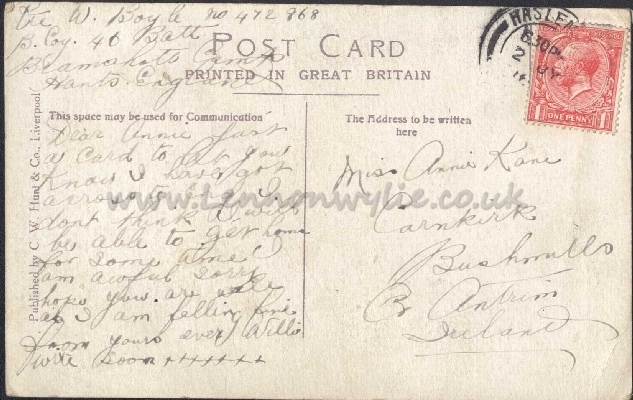 Pte W. Boyle no 472868
B. Coy. 46 Batt
Bramshott Camp
Hants England
POST CARD
PRINTED IN GREAT BRITAIN
HASLEM
630PM
ONE PENNY
Published by C. W. Hunt & Co., Liverpool
This space may be used for Communication
Dear Annie Just
a Card to let you
Know I have got
across
dont think I will
be able to get home
for some time
am awful Sorry
hope you are well
as I am feeling fine
from yours ever Willie
write soon xxxxxxx
The Address to be written
here
Miss Annie Kane
Carnkirk
Bushmills
Co Antrim
Ireland
www.Lennonwylie.co.uk